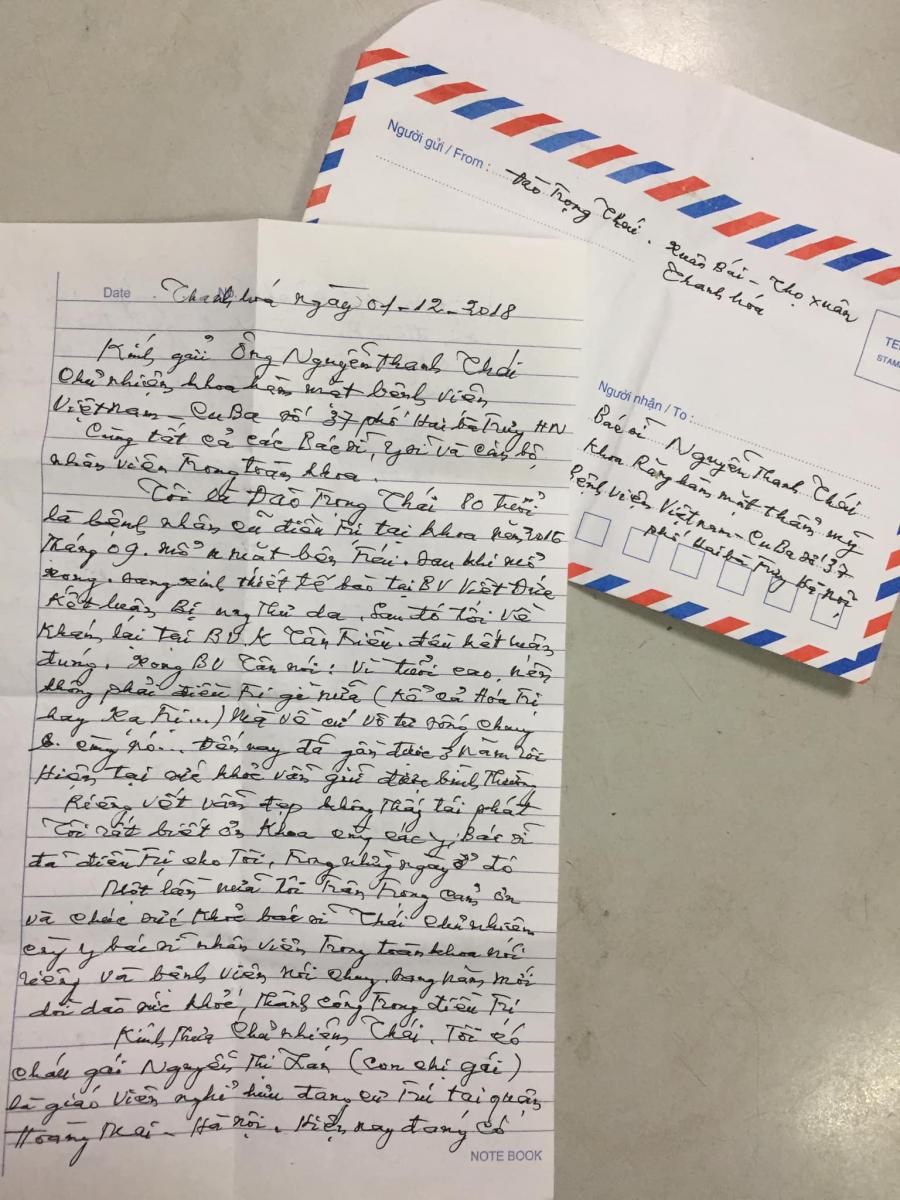 Người gửi / From :
Đào Trọng Thái. Xuân Bái - Thọ Xuân
Thanh hóa
TE
STAM
Người nhận / To :
Bác sĩ Nguyễn Thanh Thái
Khoa Răng hàm mặt thẩm mỹ
Bệnh viện Việt nam - Cu Ba số 37
phố Hai bà Trưng Hà nội
Date No.
Thanh hoá ngày 01-12-2018
Kính gửi Ông Nguyễn Thanh Thái
Chủ nhiệm khoa hàm mặt bệnh viện
Việt nam - Cu Ba số 37 phố Hai bà Trưng HN
Cùng tất cả các Bác sĩ, y sĩ và cán bộ
nhân viên Trong toàn khoa.
Tôi là Đào Trọng Thái 80 tuổi
là bệnh nhân cũ điều trị tại khoa năm 2016
Tháng 09. mổ u mặt bên trái. sau khi mổ
xong. sang sinh thiết tế bào tại BV Việt Đức
Kết luận Bị ung thư da. Sau đó tôi về
Khám lại tại BV.K Tân Triều. đều kết luận
đúng. Xong BV Tân nói: Vì tuổi cao, nên
không phải điều trị gì nữa (kể cả Hóa trị
hay Xạ Trị...) Mà về cứ vô tư sống chung
cùng nó... Đến nay đã gần được 3 năm rồi
Hiện tại sức khoẻ vẫn giữ được bình thường
Riêng vết vẫn đẹp không thấy tái phát
Tôi rất biết ơn Khoa cùng các y, Bác sĩ
đã điều trị cho Tôi, Trong những ngày ở đó
Một lần nữa Tôi Trân Trọng cảm ơn
và chúc sức khoẻ bác sĩ Thái chủ nhiệm
cùng y bác sĩ nhân viên Trong toàn khoa nói
riêng và bệnh viện nói chung. sang năm mới
dồi dào sức khoẻ, thành công Trong điều trị
Kính Thưa Chủ nhiệm Thái. Tôi có
cháu gái Nguyễn Thị (con chị gái)
là giáo viên nghỉ hưu đang cư Trú tại quận
Hoàng Mai - Hà nội. Hiện nay đang có
NOTE BOOK